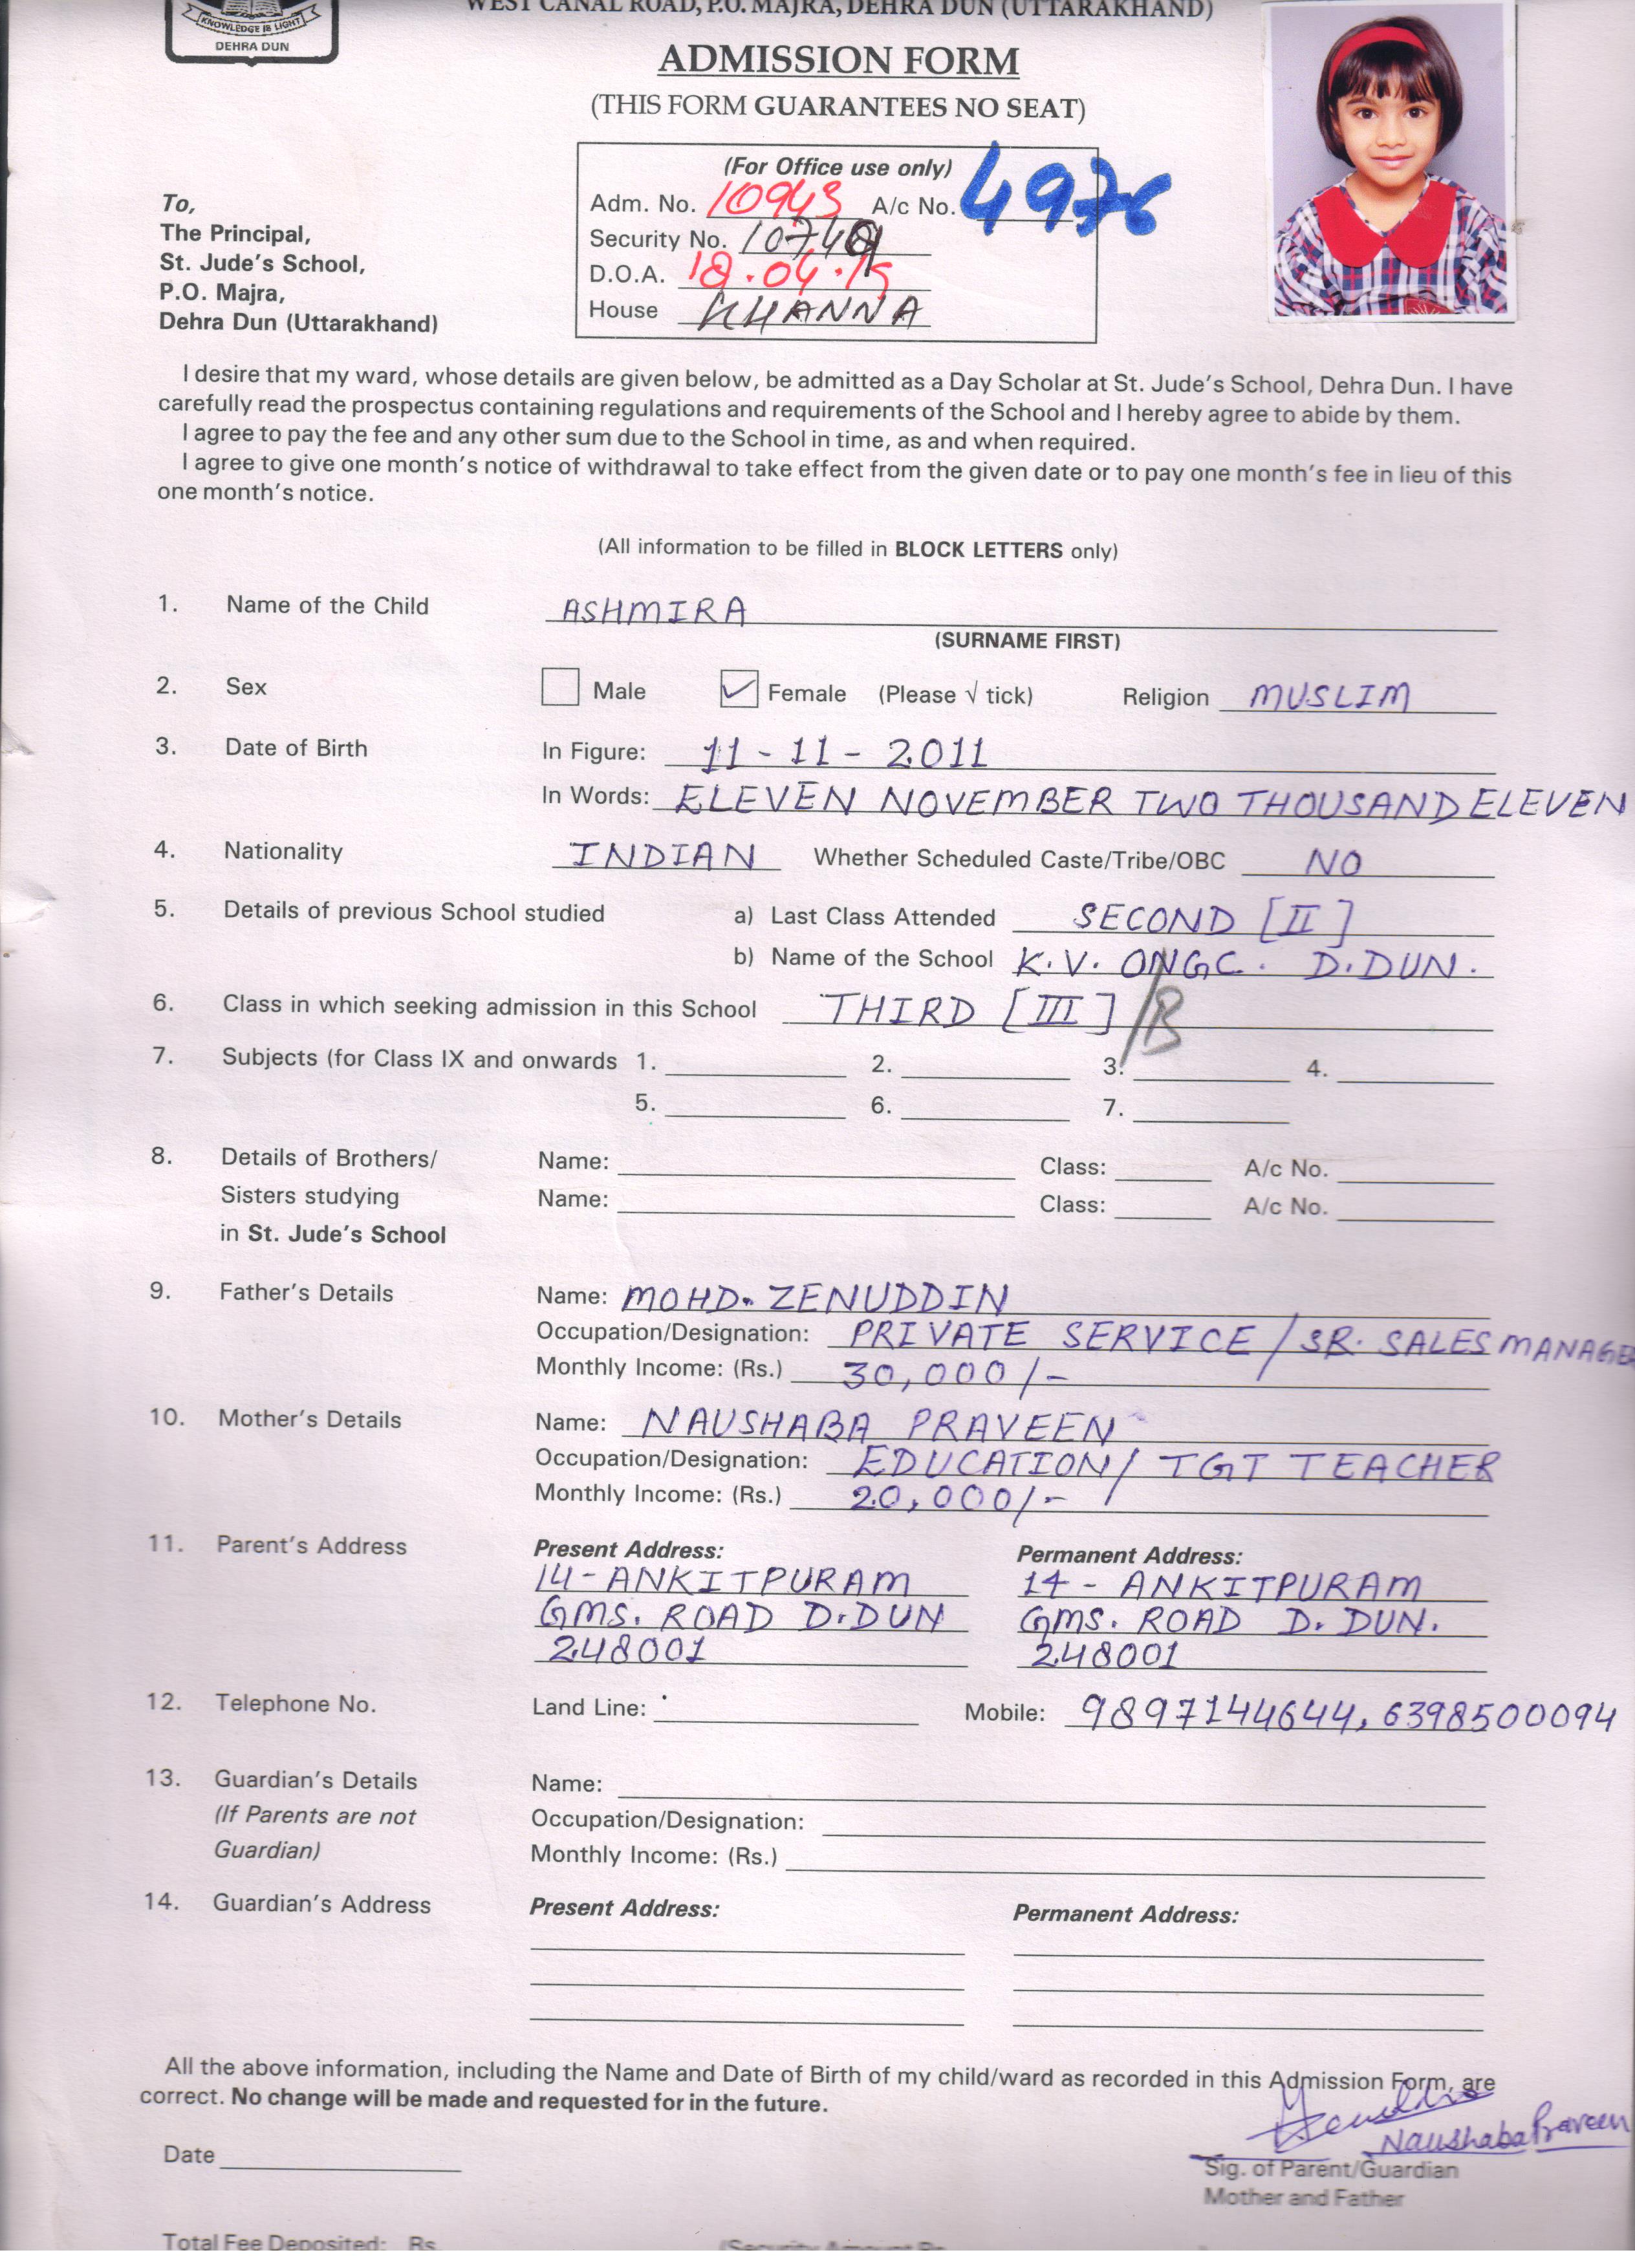 WEST CANAL ROAD, P.O. MAJRA, DEHRA DUN (UTTARAKHAND)
KNOWLEDGE IS LIGHT
DEHRA DUN
ADMISSION FORM
(THIS FORM GUARANTEES NO SEAT)
(For Office use only)
Adm. No. 10943 A/c No. 4976
Security No.
D.O.A. 18.04.19
House KHANNA
To,
The Principal,
St. Jude's School,
P.O. Majra,
Dehra Dun (Uttarakhand)
I desire that my ward, whose details are given below, be admitted as a Day Scholar at St. Jude's School, Dehra Dun. I have
carefully read the prospectus containing regulations and requirements of the School and I hereby agree to abide by them.
I agree to pay the fee and any other sum due to the School in time, as and when required.
I agree to give one month's notice of withdrawal to take effect from the given date or to pay one month's fee in lieu of this
one month's notice.
(All information to be filled in BLOCK LETTERS only)
1. Name of the Child ASHMIRA
(SURNAME FIRST)
2. Sex Male ✓ Female (Please √ tick) Religion MUSLIM
3. Date of Birth In Figure: 11-11-2011
In Words: ELEVEN NOVEMBER TWO THOUSAND ELEVEN
4. Nationality INDIAN Whether Scheduled Caste/Tribe/OBC NO
5. Details of previous School studied a) Last Class Attended SECOND [II]
b) Name of the School K.V. ONGC. D.DUN.
6. Class in which seeking admission in this School THIRD [III] /B
7. Subjects (for Class IX and onwards 1. 2. 3. 4.
5. 6. 7.
8. Details of Brothers/ Name: Class: A/c No.
Sisters studying Name: Class: A/c No.
in St. Jude's School
9. Father's Details Name: MOHD. ZENUDDIN
Occupation/Designation: PRIVATE SERVICE / SR. SALES MANAGER
Monthly Income: (Rs.) 30,000/-
10. Mother's Details Name: NAUSHABA PRAVEEN
Occupation/Designation: EDUCATION/ TGT TEACHER
Monthly Income: (Rs.) 20,000/-
11. Parent's Address Present Address: Permanent Address:
14-ANKITPURAM 14-ANKITPURAM
GMS. ROAD D.DUN GMS. ROAD D. DUN.
248001 248001
12. Telephone No. Land Line: Mobile: 9897144644, 6398500094
13. Guardian's Details Name:
(If Parents are not Occupation/Designation:
Guardian) Monthly Income: (Rs.)
14. Guardian's Address Present Address: Permanent Address:
All the above information, including the Name and Date of Birth of my child/ward as recorded in this Admission Form, are
correct. No change will be made and requested for in the future.
Naushaba Praveen
Date Sig. of Parent/Guardian
Mother and Father
Total Fee Deposited: Rs.